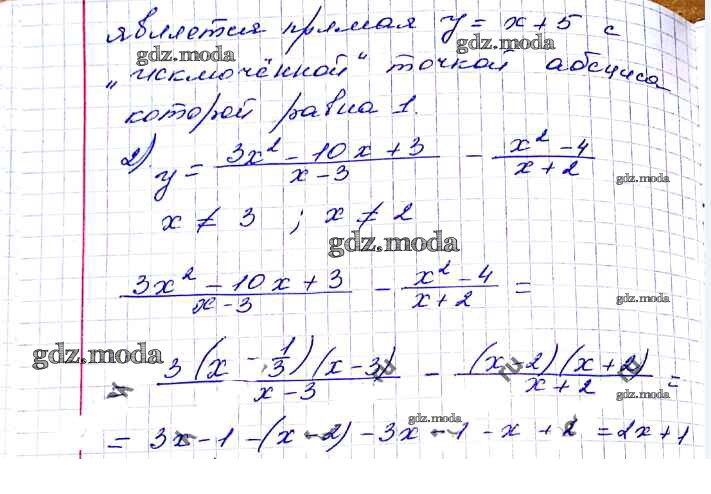 является прямая y = x + 5 с
gdz.moda
"исключённой" точкой абсцисса
которой равна 1.
2) y = \frac{3x^2 - 10x + 3}{x - 3} - \frac{x^2 - 4}{x + 2}
gdz.moda
x ≠ 3 ; x ≠ 2
gdz.moda
\frac{3x^2 - 10x + 3}{x - 3} - \frac{x^2 - 4}{x + 2} =
gdz.moda
gdz.moda
= \frac{3(x - \frac{1}{3})(x - 3)}{x - 3} - \frac{(x - 2)(x + 2)}{x + 2} =
ru ru ru
gdz.moda
gdz.moda
= 3x - 1 - (x - 2) - 3x - 1 - x + 2 = 2x + 1